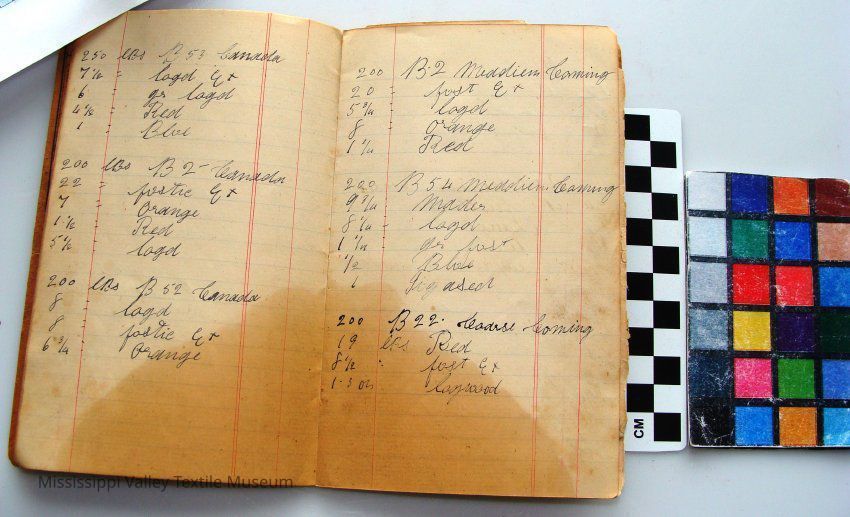 250 lbs B 53 Canada
7 1/2 " logd Ex
6 " gr logd
4 1/2 " Red
1 " Blue
200 lbs B 2 - Canada
22 " fostic Ex
7 " Orange
1 1/2 " Red
5 1/2 " logd
200 lbs B 52 Canada
8 logd
8 fostic Ex
6 3/4 Orange
200 B-2 Meddiem Coming
20 - fost Ex
5 3/4 logd
8 Orange
1 1/4 Red
200 B 54 Meddiem Coming
9 Mader
8 1/4 - logd
1 1/4 - gr fost
1/2 Blue
1
200 B 22 - Coarse Coming
19 lbs Red
8 1/2 " fost Ex
1-3 oz logwood
CM
Mississippi Valley Textile Museum